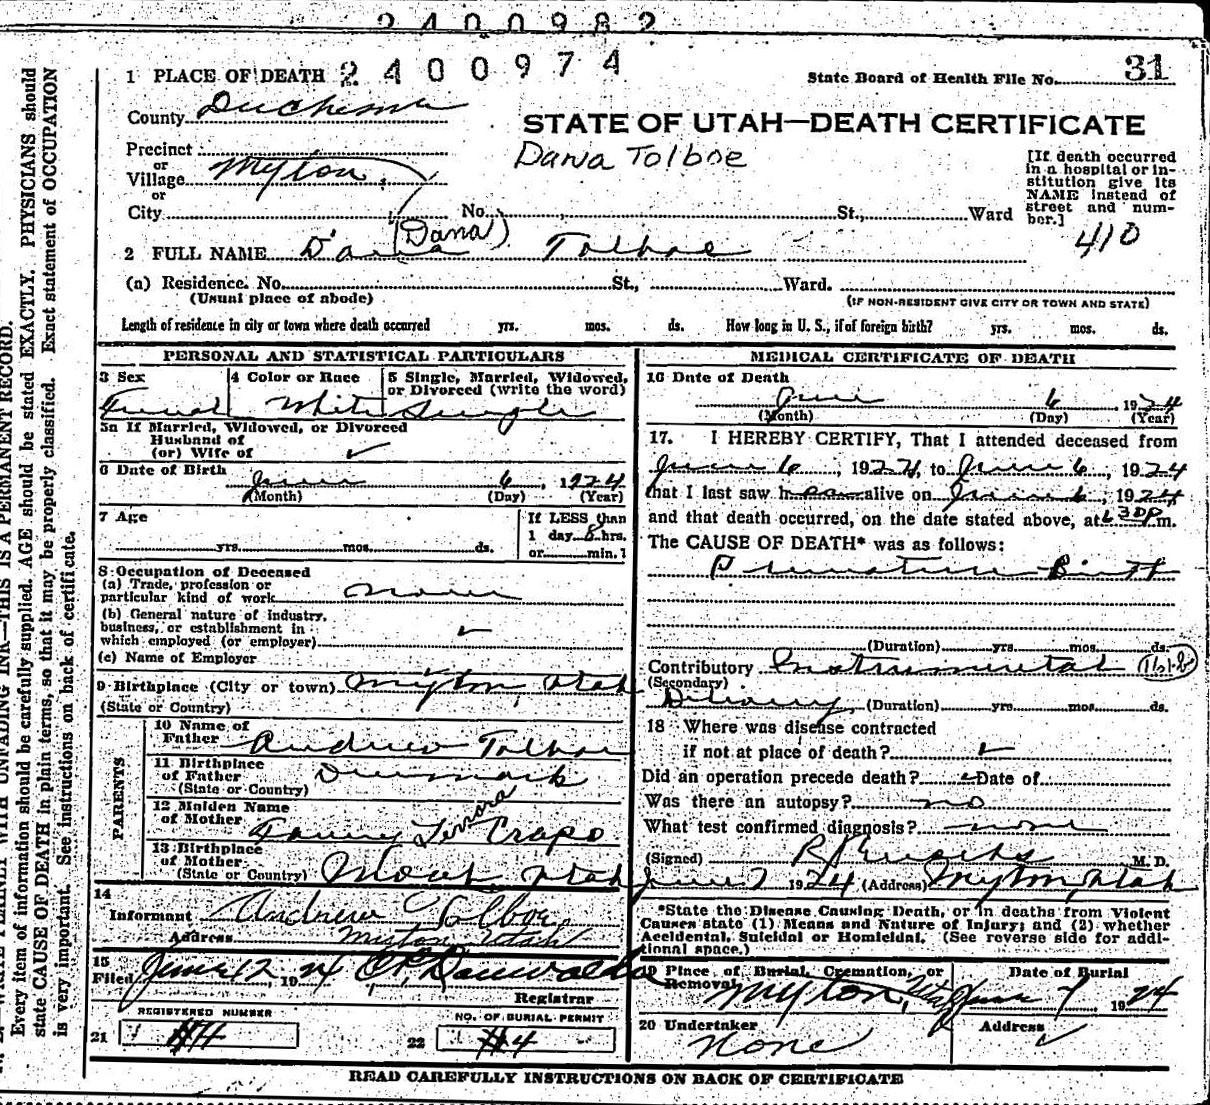 2400982
1 PLACE OF DEATH 2400974
State Board of Health File No. 31
County Duchesne
STATE OF UTAH—DEATH CERTIFICATE
Dana Tolboe
Precinct
or
Village Myton
or
City No. St., Ward
[If death occurred in a hospital or institution give its NAME instead of street and number.]
410
(Dana)
2 FULL NAME Dana Tolboe
(a) Residence. No. St., Ward.
(Usual place of abode)
(IF NON-RESIDENT GIVE CITY OR TOWN AND STATE)
Length of residence in city or town where death occurred yrs. mos. ds. How long in U. S., if of foreign birth? yrs. mos. ds.
PERSONAL AND STATISTICAL PARTICULARS
3 Sex 4 Color or Race 5 Single, Married, Widowed, or Divorced (write the word)
Femal White Single
5a If Married, Widowed, or Divorced
Husband of
(or) Wife of ✓
6 Date of Birth
June 6, 1924
(Month) (Day) (Year)
7 Age If LESS than
1 day 8 hrs.
yrs. mos. ds. or min.?
8 Occupation of Deceased
(a) Trade, profession or
particular kind of work none
(b) General nature of industry,
business, or establishment in
which employed (or employer) ✓
(c) Name of Employer
9 Birthplace (City or town) Myton, Utah
(State or Country)
PARENTS
10 Name of
Father Andrew Tolboe
11 Birthplace
of Father Denmark
(State or Country)
12 Maiden Name
of Mother Fanny Lenora Crapo
13 Birthplace
of Mother
(State or Country) Moab, Utah
14
Informant Andrew Tolboe
Address Myton Utah
15
Filed June 12, 1924
Registrar
REGISTERED NUMBER
21
NO. OF BURIAL PERMIT
22 #4
MEDICAL CERTIFICATE OF DEATH
16 Date of Death
June 6, 1924
(Month) (Day) (Year)
17. I HEREBY CERTIFY, That I attended deceased from
June 6, 1924, to June 6, 1924
that I last saw h alive on June 6, 1924
and that death occurred, on the date stated above, at m.
The CAUSE OF DEATH* was as follows:
Premature Birth
(Duration) yrs. mos. ds.
Contributory Instrumental
(Secondary)
Delivery. (Duration) yrs. mos. ds.
18 Where was disease contracted
if not at place of death? ✓
Did an operation precede death? ✓ Date of
Was there an autopsy? no
What test confirmed diagnosis? none
(Signed) M. D.
June 7 1924 (Address) Myton, Utah
*State the Disease Causing Death, or in deaths from Violent
Causes state (1) Means and Nature of Injury; and (2) whether
Accidental, Suicidal or Homicidal. (See reverse side for additional space.)
19 Place of Burial, Cremation, or Removal Date of Burial
Myton, Utah June 7 1924
20 Undertaker Address
None ✓
READ CAREFULLY INSTRUCTIONS ON BACK OF CERTIFICATE
WRITE PLAINLY WITH UNFADING INK—THIS IS A PERMANENT RECORD.
Every item of information should be carefully supplied. AGE should be stated EXACTLY. PHYSICIANS should
state CAUSE OF DEATH in plain terms, so that it may be properly classified. Exact statement of OCCUPATION
is very important. See instructions on back of certificate.